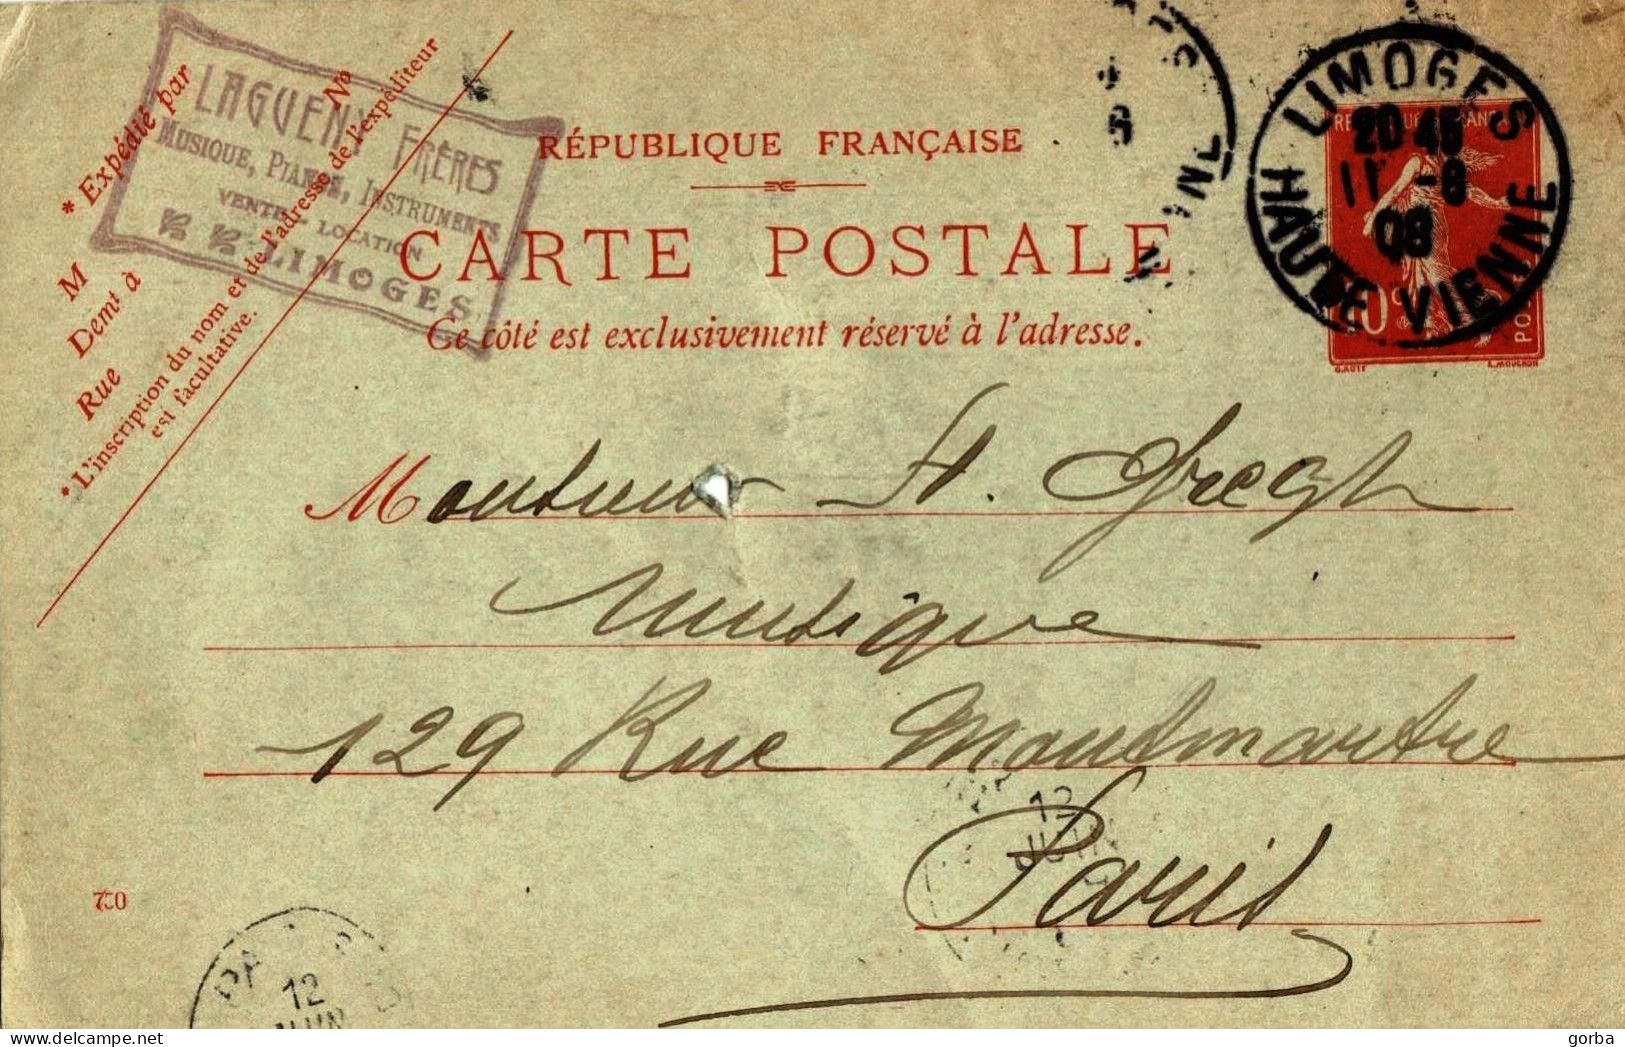 LAGUENY FRÈRES
MUSIQUE, PIANOS, INSTRUMENTS
VENTE - LOCATION
LIMOGES
* Expédié par
M
Dem^t à
Rue
N^o
* L'inscription du nom et de l'adresse de l'expéditeur
est facultative.
RÉPUBLIQUE FRANÇAISE
CARTE POSTALE
Ce côté est exclusivement réservé à l'adresse.
LIMOGES
20 45
11 -6
08
HAUTE VIENNE
POS
G. ROTY
L. MOUCHON
Monsieur H. Gregh
Musique
129 Rue Montmartre
Paris
12
JUIN
750
PARIS
12
JUIN
gorba